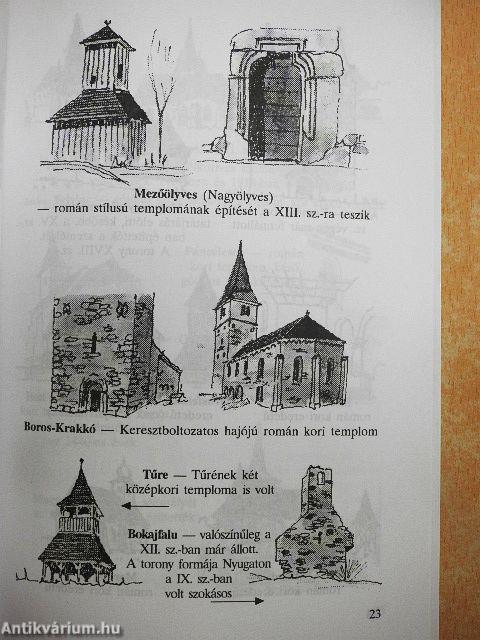 Mezőölyves (Nagyölyves)
— román stílusú templomának építését a XIII. sz.-ra teszik
Boros-Krakkó — Keresztboltozatos hajójú román kori templom
Tűre — Tűrének két
középkori temploma is volt
Bokajfalu — valószínűleg a
XII. sz.-ban már állott.
A torony formája Nyugaton
a IX. sz.-ban
volt szokásos
23
Antikvárium.hu